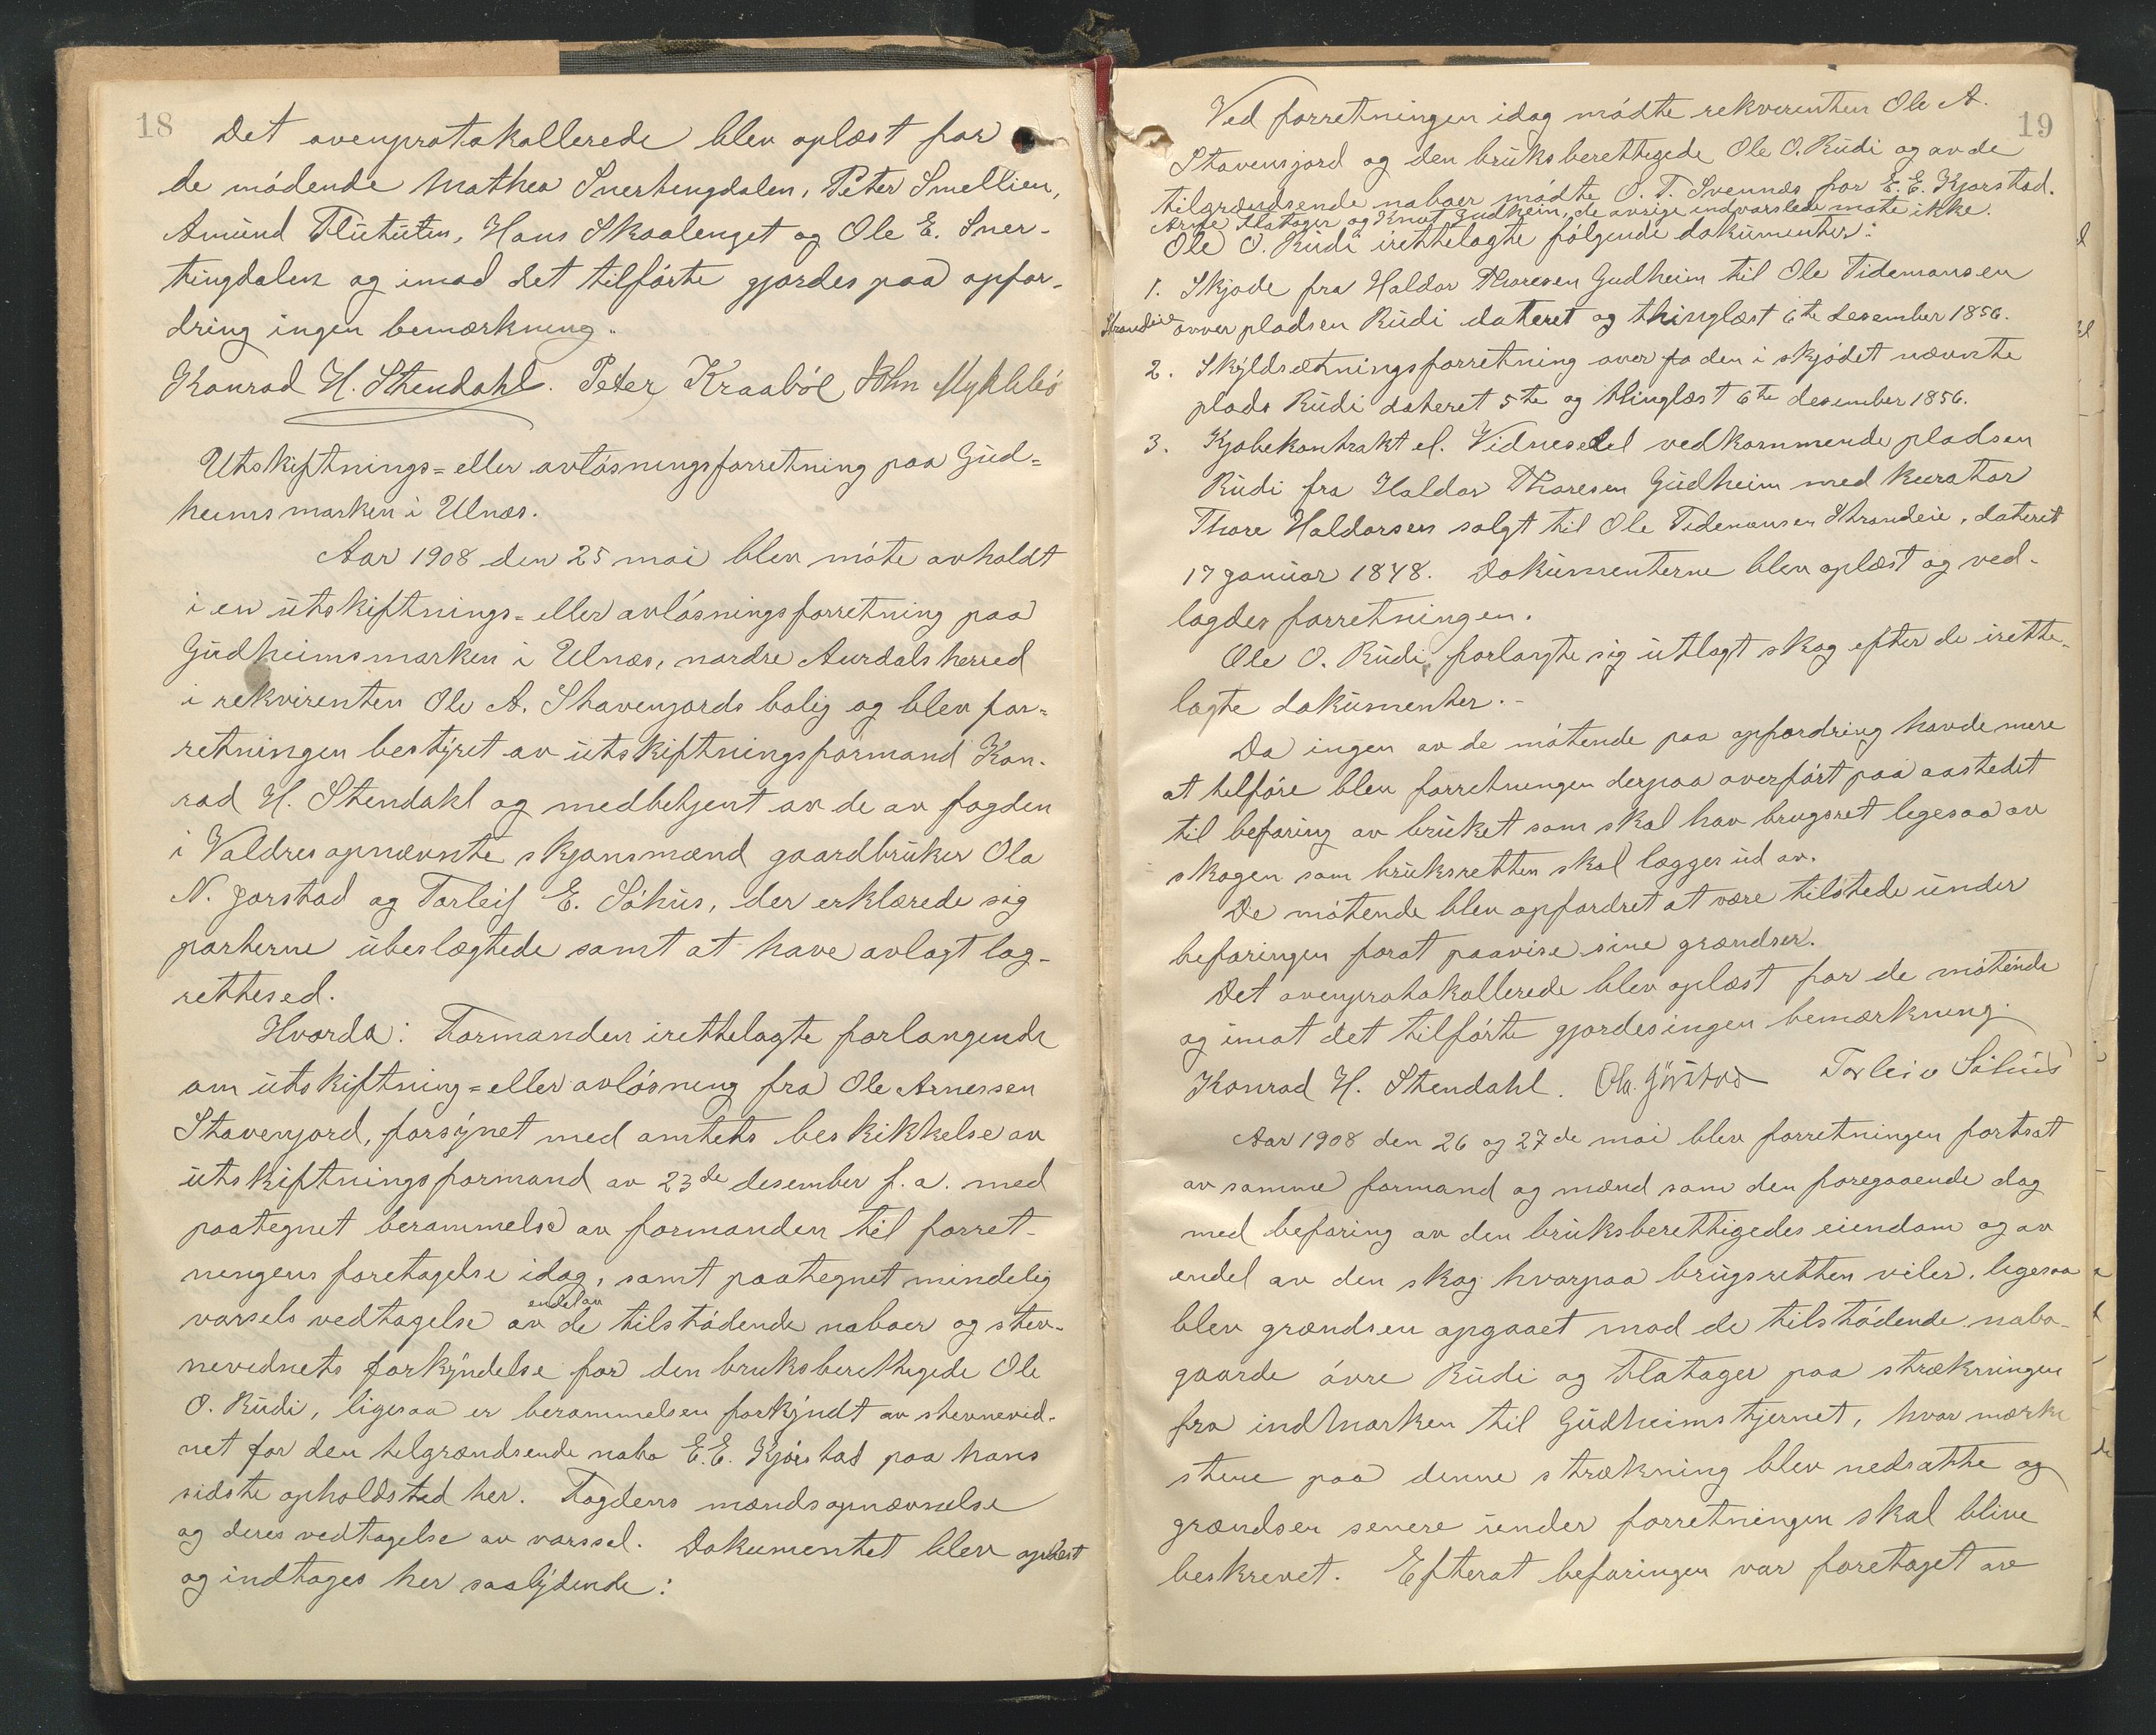 18
Det ovenprotokollerede blev oplæst for
de mødende Mathea Snertengdalen, Peter Smellien,
Amund Flututen, Hans Skaalenget og Ole E. Sner-
tingdalen og imod det tilførte gjordes paa opfor-
dring ingen bemærkning.
Konrad H. Stendahl. Peter Kraabøl John Myklebö
Utskiftnings- eller avløsningsforretning paa Gud-
heimsmarken i Ulnæs.
Aar 1908 den 25 mai blev møte avholdt
i en utskiftnings- eller avløsningsforretning paa
Gudheimsmarken i Ulnæs, nordre Aurdals herred
i rekvirenten Ole A. Stavenjords bolig og blev for-
retningen bestyret av utskiftningsformand Kon-
rad H. Stendahl og medbetjent av de av fogden
i Valdres opnævnte skjønsmænd gaardbruker Ola
N. Jorstad og Torleif E. Söhus, der erklærede sig
parterne ubeslægtede samt at have avlagt lag-
rettesed.
Hvorda: Formanden irettelagte forlangende
om utskiftning- eller avløsning fra Ole Arnessen
Stavenjord, forsynet med amtets beskikkelse av
utskiftningsformand av 23de desember f.a. med
paategnet berammelse av formanden til forret-
nengens foretagelse idag, samt paategnet mindelig
varsels vedtagelse av endel av de tilstødende naboer og stev-
nevidnets forkyndelse for den bruksberettigede Ole
O. Rudi, ligesaa er berammelsen forkyndt av stevnevid-
net for den tilgrændsende nabo E.E. Kjörstad paa hans
sidste opholdsted her. Fogdens mændsopnævnelse
og deres vedtagelse av varssel. Dokumentet blev oplæst
og indtages her saalydende:
19
Ved forretningen idag mødte rekvirenten Ole A.
Stavensjord og den bruksberettegede Ole O. Rudi og av de
tilgrændsende naboer mødte O. T. Svennæs for E.E. Kjorstad.
Arne Flatager og Knut Gudheim, de øvrige indvarslede møte ikke.
Ole O. Rudi irettelagte følgende dokumenter:
1. Skjøde fra Haldor Thoresen Gudheim til Ole Tidemansen
Strandeie over pladsen Rudi dateret og thinglæst 6te desember 1856.
2. Skyldsætningsforretning over fo den i skjødet nævnte
plads Rudi dateret 5te og thinglæst 6te desember 1856.
3. Kjøbekontrakt el. Vidnesedel vedkommende pladsen
Rudi fra Haldor Thoresen Gudheim med kurator
Thore Haldorsen solgt til Ole Tidemansen Strandeie, dateret
17 januar 1848. Dokumenterne blev oplæst og ved-
lagdes forretningen.
Ole O. Rudi forlangte sig utlagt skog efter de irette-
lagte dokumenter.-
Da ingen av de møtende paa opfordring havde mere
at tilføre blev forretningen derpaa overført paa aastedet
til befaring av bruket som skal hav brugsret ligesaa av
skogen som bruksretten skal lægges ud av.
De møtende blev opfordret at være tilstede under
befaringen forat paavise sine grændser.
Det ovenprotokollerede blev oplæst for de møtende
og imot det tilførte gjordes ingen bemærkning.
Konrad H. Stendahl. Ola Jörstad Torleiv Söhus
Aar 1908 den 26 og 27de mai blev forretningen fortsat
av samme formand og mænd som den foregaaende dag
med befaring av den bruksberettigedes eiendom og av
endel av den skog hvorpaa brugsretten viler. ligesaa
blev grændsen opgaaet mod de tilstødende nabo-
gaarde øvre Rudi og Flatager paa strækningen
fra indmarken til Gudheimstjernet, hvor mærke
stene paa denne strækning blev nedsatte og
grændsen senere under forretningen skal blive
beskrevet. Efterat befaringen var foretaget av